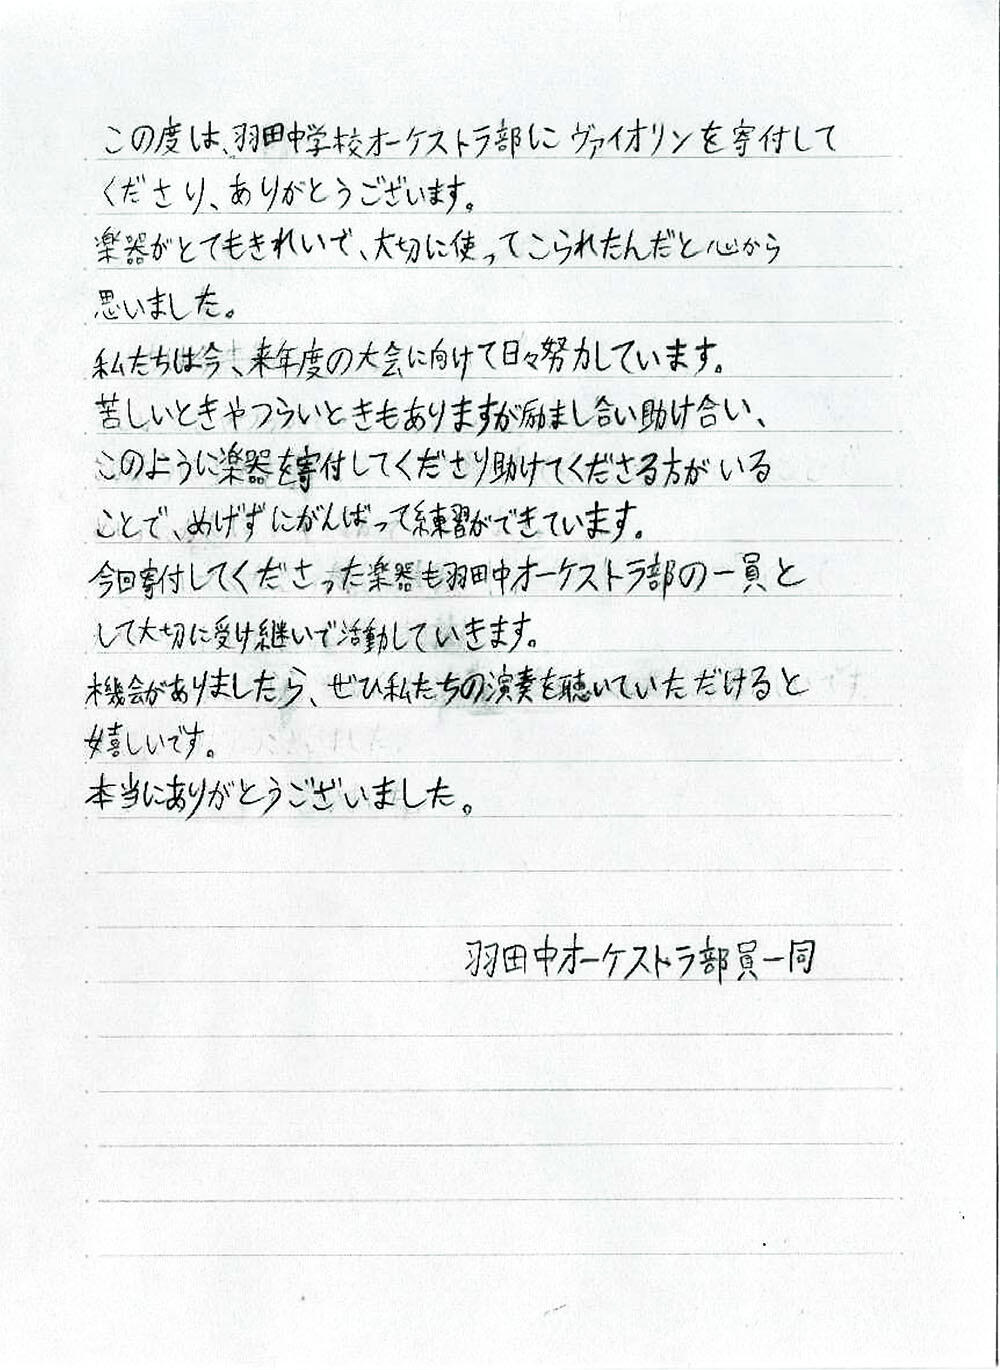 この度は、羽田中学校オーケストラ部に ヴァイオリンを寄付して
くださり、ありがとうございます。
楽器がとてもきれいで、大切に使ってこられたんだと心から
思いました。
私たちは今、来年度の大会に向けて日々努力しています。
苦しいときやつらいときもありますが励まし合い助け合い、
このように楽器を寄付してくださり助けてくださる方がいる
ことで、めげずにがんばって練習ができています。
今回寄付してくださった楽器も羽田中オーケストラ部の一員と
して大切に受け継いで活動していきます。
機会がありましたら、ぜひ私たちの演奏を聴いていただけると
嬉しいです。
本当にありがとうございました。
羽田中オーケストラ部員一同